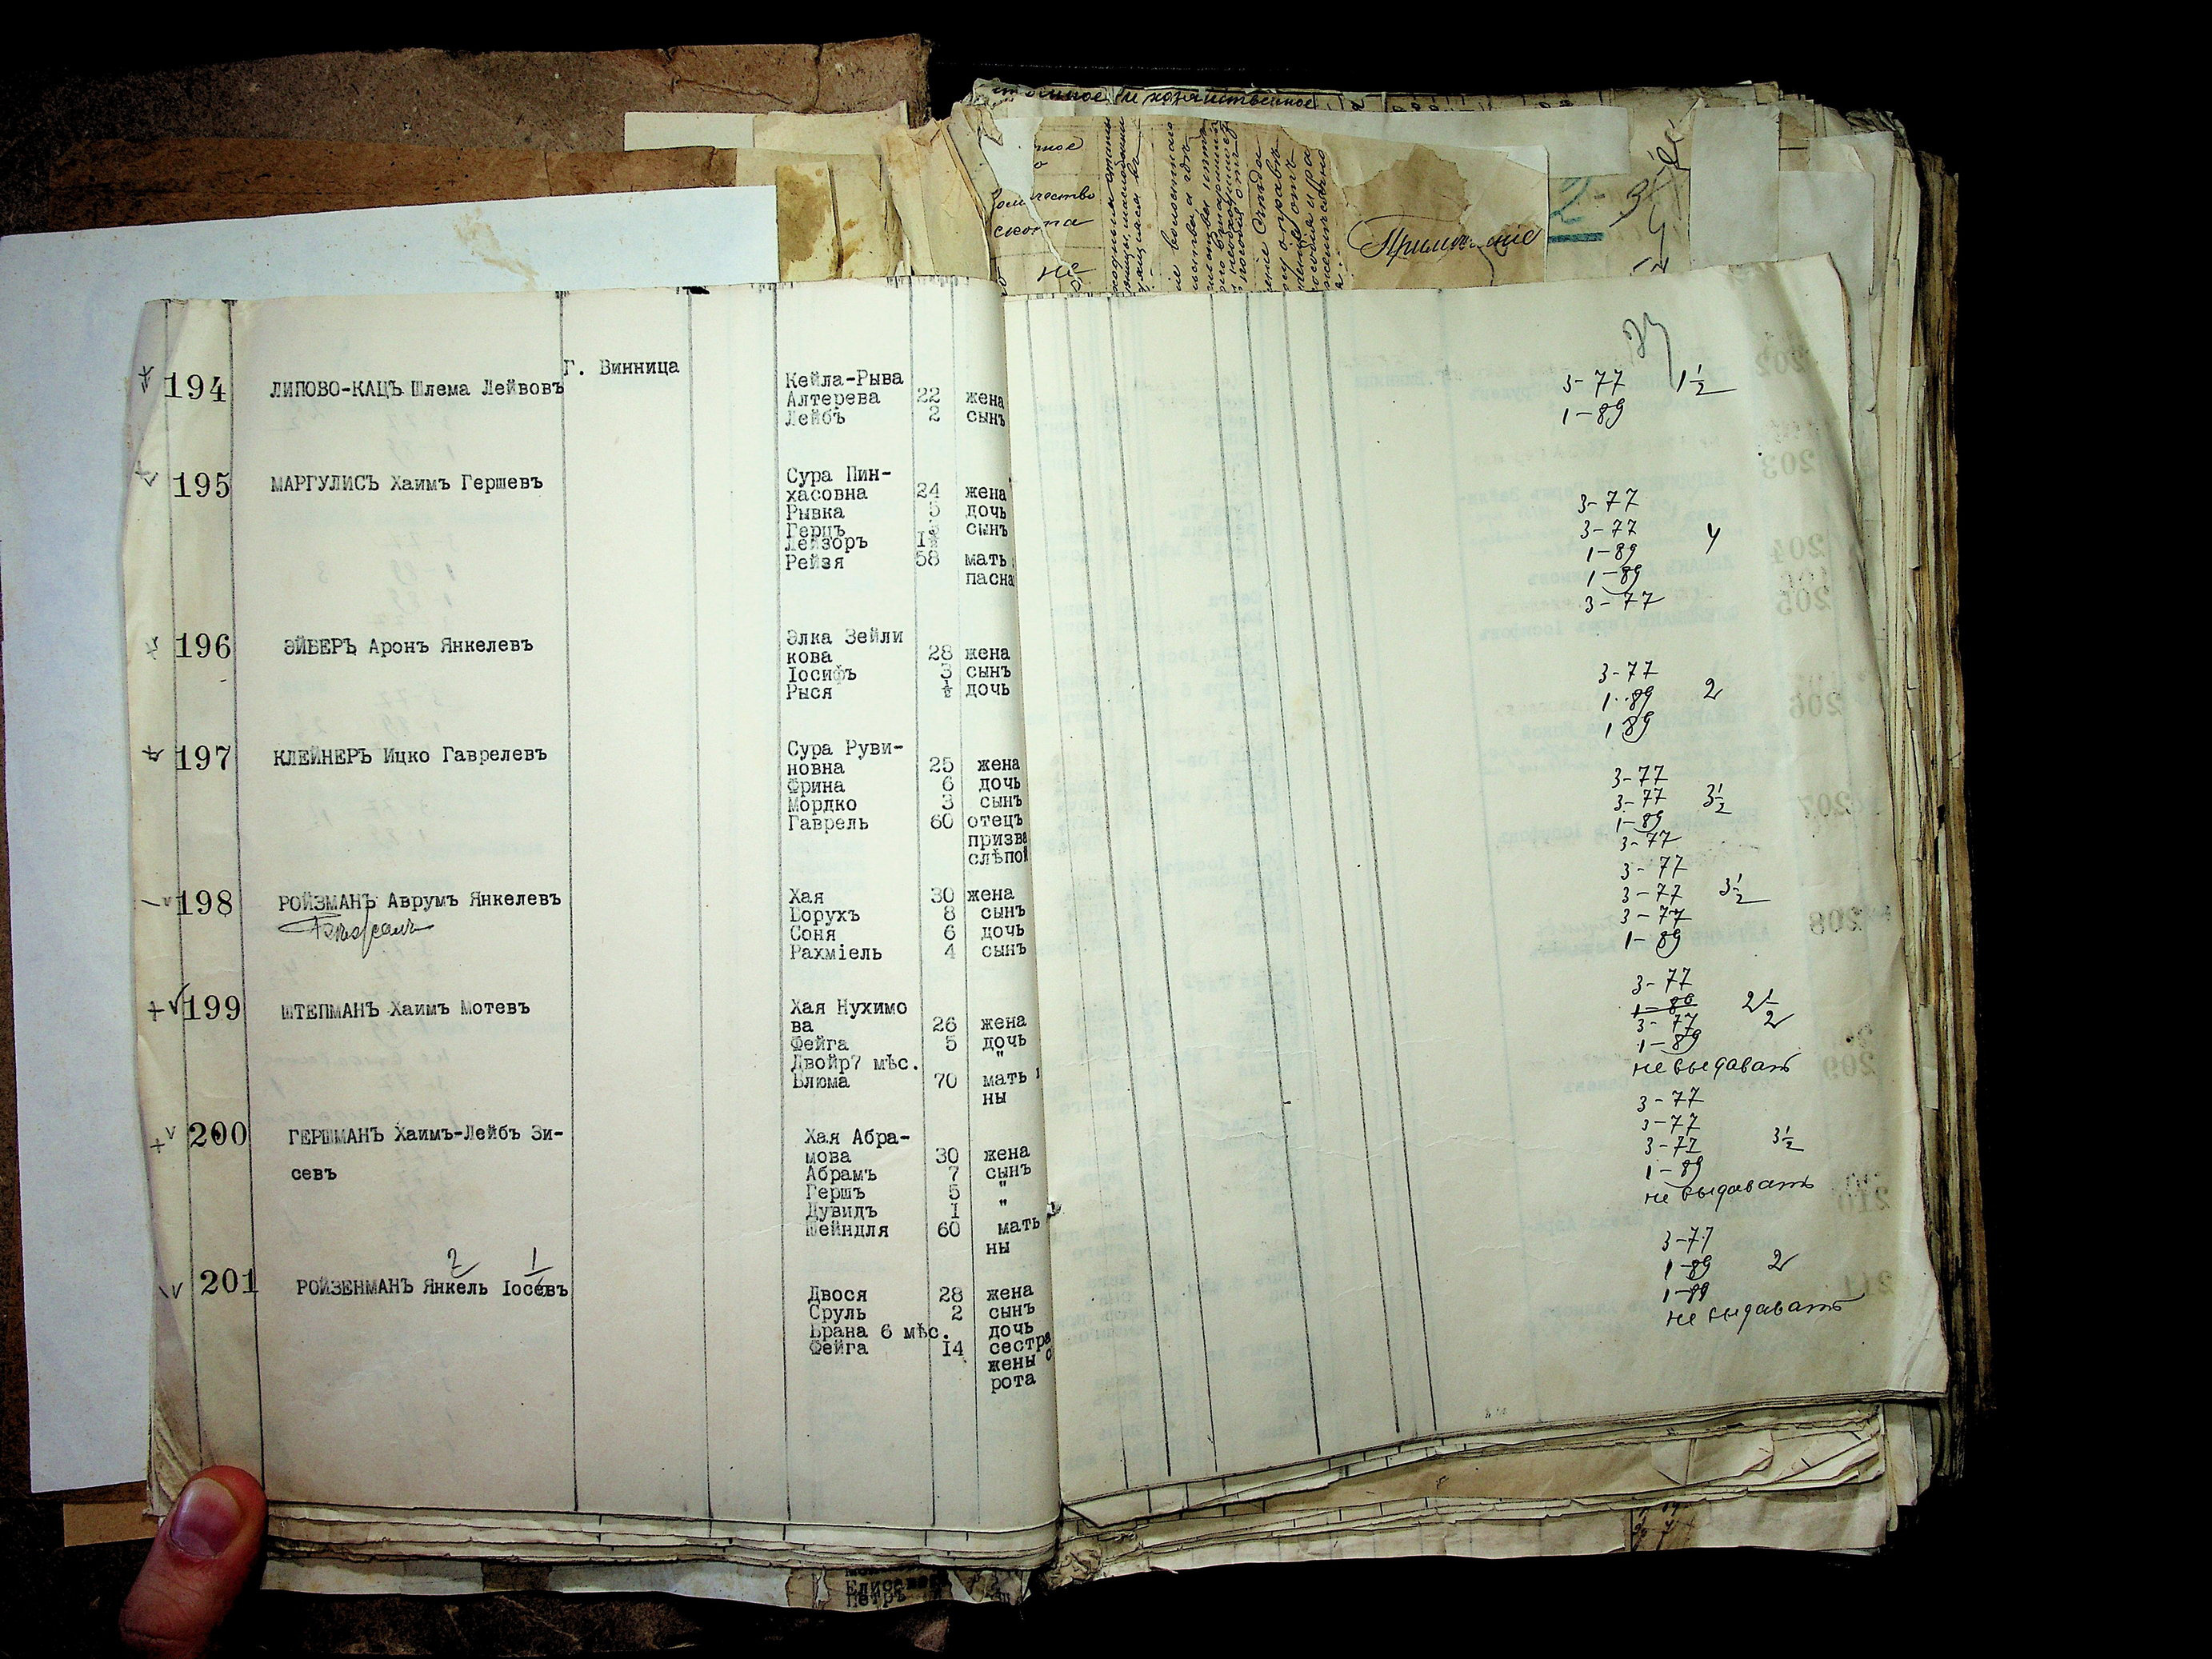 Примѣчаніе
Г. Винница
194 ЛИПОВО-КАЦЪ Шлема Лейвовъ
Кейла-Рыва
Алтерева 22 жена
Лейбъ 2 сынъ
3-77 1½
1-89
195 МАРГУЛИСЪ Хаимъ Гершевъ
Сура Пин-
хасовна 24 жена
Рывка 5 дочь
Герцъ сынъ
Лейзоръ 1½
Рейзя 58 мать
пасна
3-77
3-77 4
1-89
1-89
3-77
196 ЭЙБЕРЪ Аронъ Янкелевъ
Элка Зейли
кова 28 жена
Іосифъ 3 сынъ
Рыся ½ дочь
3-77
1-89 2
1 89
197 КЛЕЙНЕРЪ Ицко Гаврелевъ
Сура Руви-
новна 25 жена
Фрина 6 дочь
Мордко 3 сынъ
Гаврель 60 отецъ
призва
слѣпой
3-77
3-77 3½
1-89
3-77
198 РОЙЗМАНЪ Аврумъ Янкелевъ
Хая 30 жена
Борухъ 8 сынъ
Соня 6 дочь
Рахміель 4 сынъ
3-77
3-77 3½
3-77
1-89
199 ШТЕПМАНЪ Хаимъ Мотевъ
Хая Нухимо
ва 26 жена
Фейга 5 дочь
Двойр7 мѣс. "
Блюма 70 мать
ны
3-77
1-89 2½
3-77
1-89
не выдавать
200 ГЕРШМАНЪ Хаимъ-Лейбъ Зи-
севъ
Хая Абра-
мова 30 жена
Абрамъ 7 сынъ
Гершъ 5 "
Дувидъ 1 "
Шейндля 60 мать
ны
3-77
3-77
3-77 3½
1-89
не выдавать
201 РОЙЗЕНМАНЪ Янкель Іосевъ
2 1
Двося 28 жена
Сруль 2 сынъ
Брана 6 мѣс. дочь
Фейга 14 сестра
жены с
рота
3-77
1-89 2
1-89
не выдавать